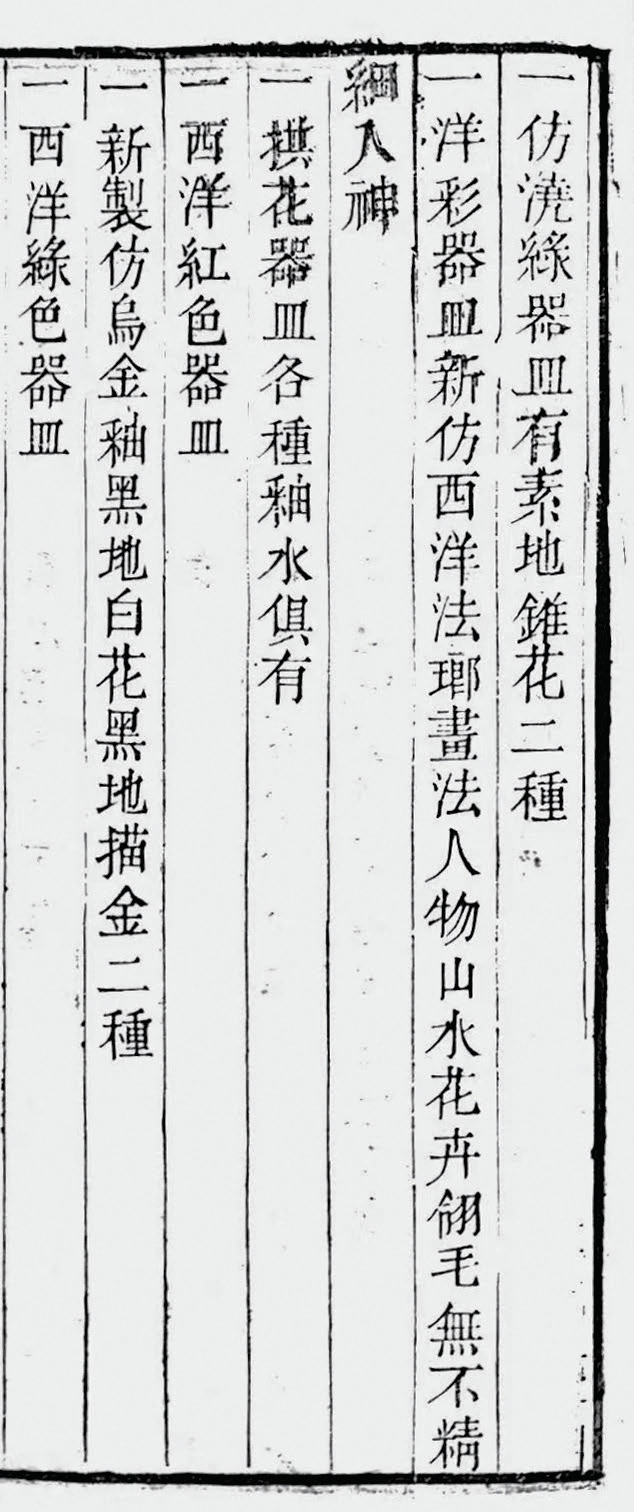 一仿澆綠器皿有素地錐花二種
一洋彩器皿新仿西洋法瑯畫法人物山水花卉翎毛無不精
細入神
一拱花器皿各種釉水俱有
一西洋紅色器皿
一新製仿烏金釉黑地白花黑地描金二種
一西洋綠色器皿